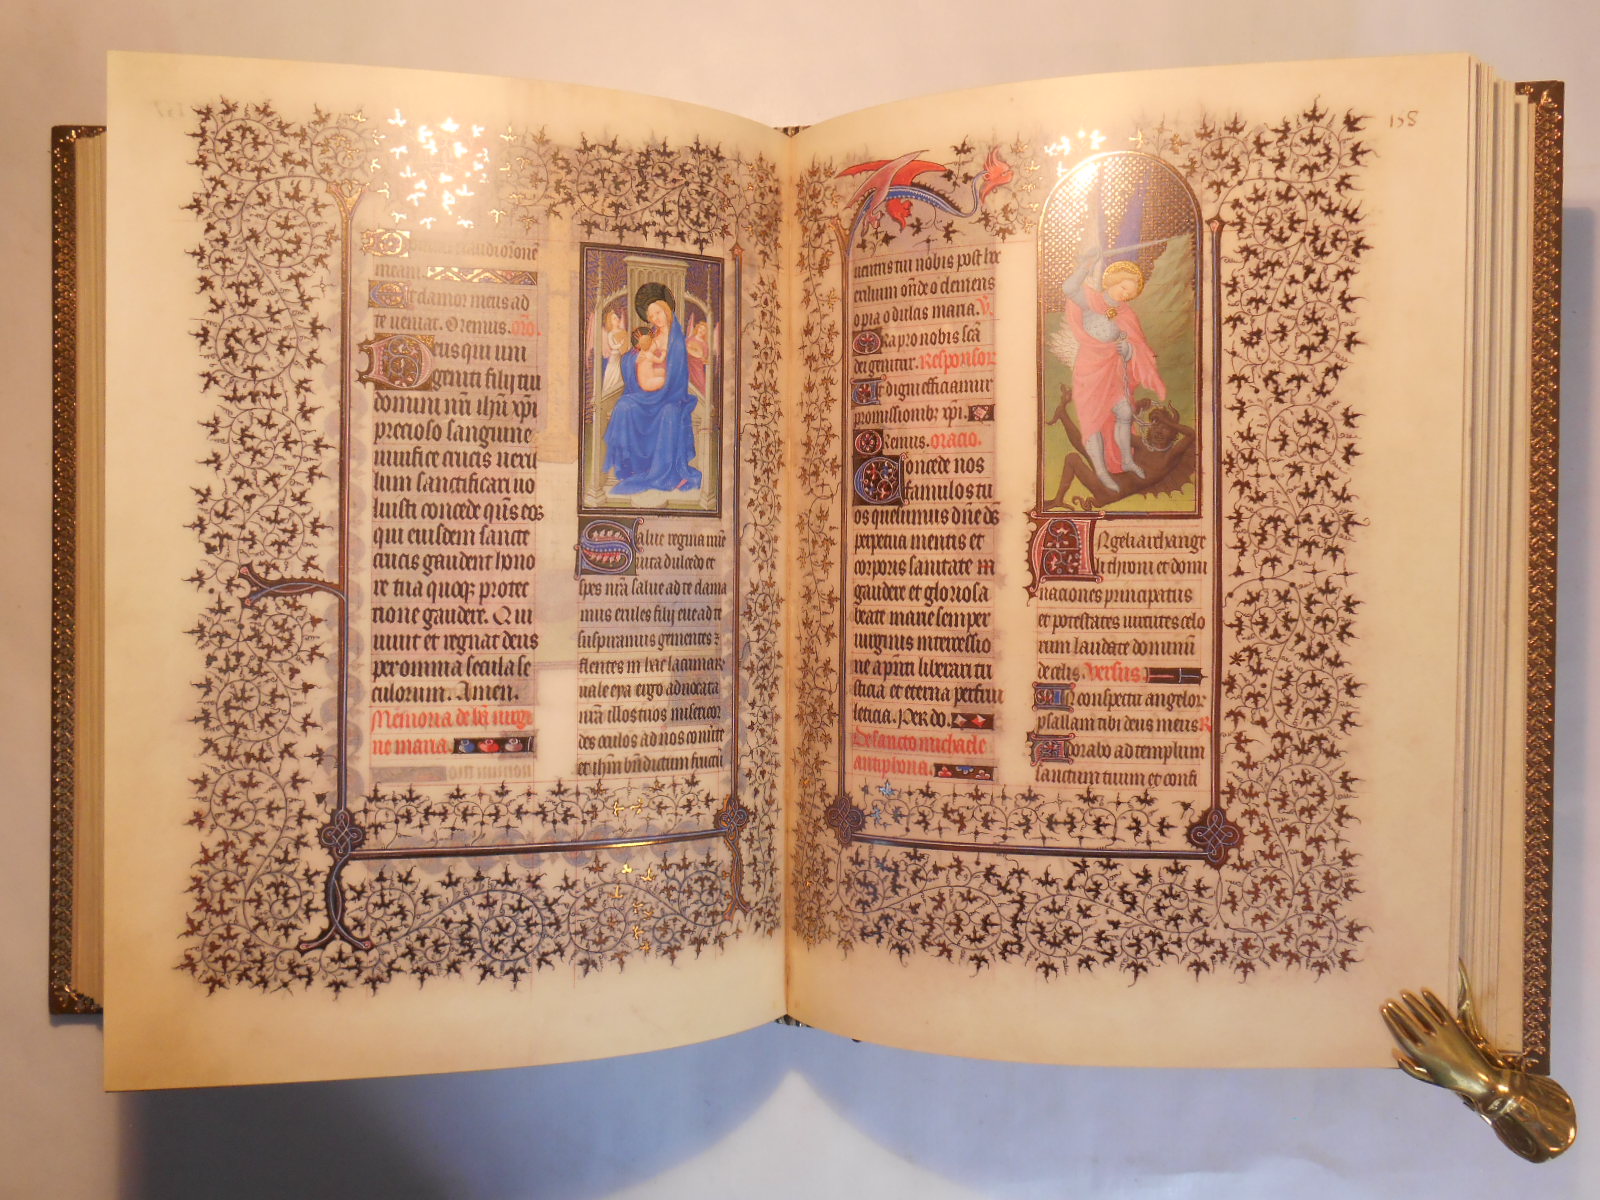 meam.
Et clamor meus ad
te veniat. Oremus. oro.
Deus qui uni
geniti filij tui
domini nri ihu xpi
precioso sanguine
vivifice crucis vexil
lum sanctificari vo
luisti concede qs eos
qui eiusdem sancte
crucis gaudent hono
re tua quoqz protec
tione gaudere. Qui
vivit et regnat deus
per omnia secula se
culorum. Amen.
Memoria de bta virgi
ne maria.
Salve regina mise
vita dulcedo et
spes nra salve ad te clama
mus exules filij eve ad te
suspiramus gementes z
flentes in hac lacrimar
valle eya ergo advocata
nra illos tuos misericor
des oculos ad nos convte
et ihm bndictum fructu
158
ventris tui nobis post hoc
exilium onde o clemens
o pia o dulcis maria. V.
Ora pro nobis sca
dei genitrix. Responsor
Ut digni efficiamur
promissionib xpi.
Oremus. oracio.
Concede nos
famulos tu
os quesumus dne ds
perpetua mentis et
corporis sanitate
gaudere et gloriosa
beate marie semper
virginis intercessio
ne a pnti liberari tri
sticia et eterna perfrui
leticia. Per do.
De sancto michaele
antiphona.
Angeli archange
li throni et domi
naciones principatus
et potestates virtutes celo
rum laudate dominum
de celis. versus
In conspectu angelor
psallam tibi deus meus R
Adorabo ad templum
sanctum tuum et confi